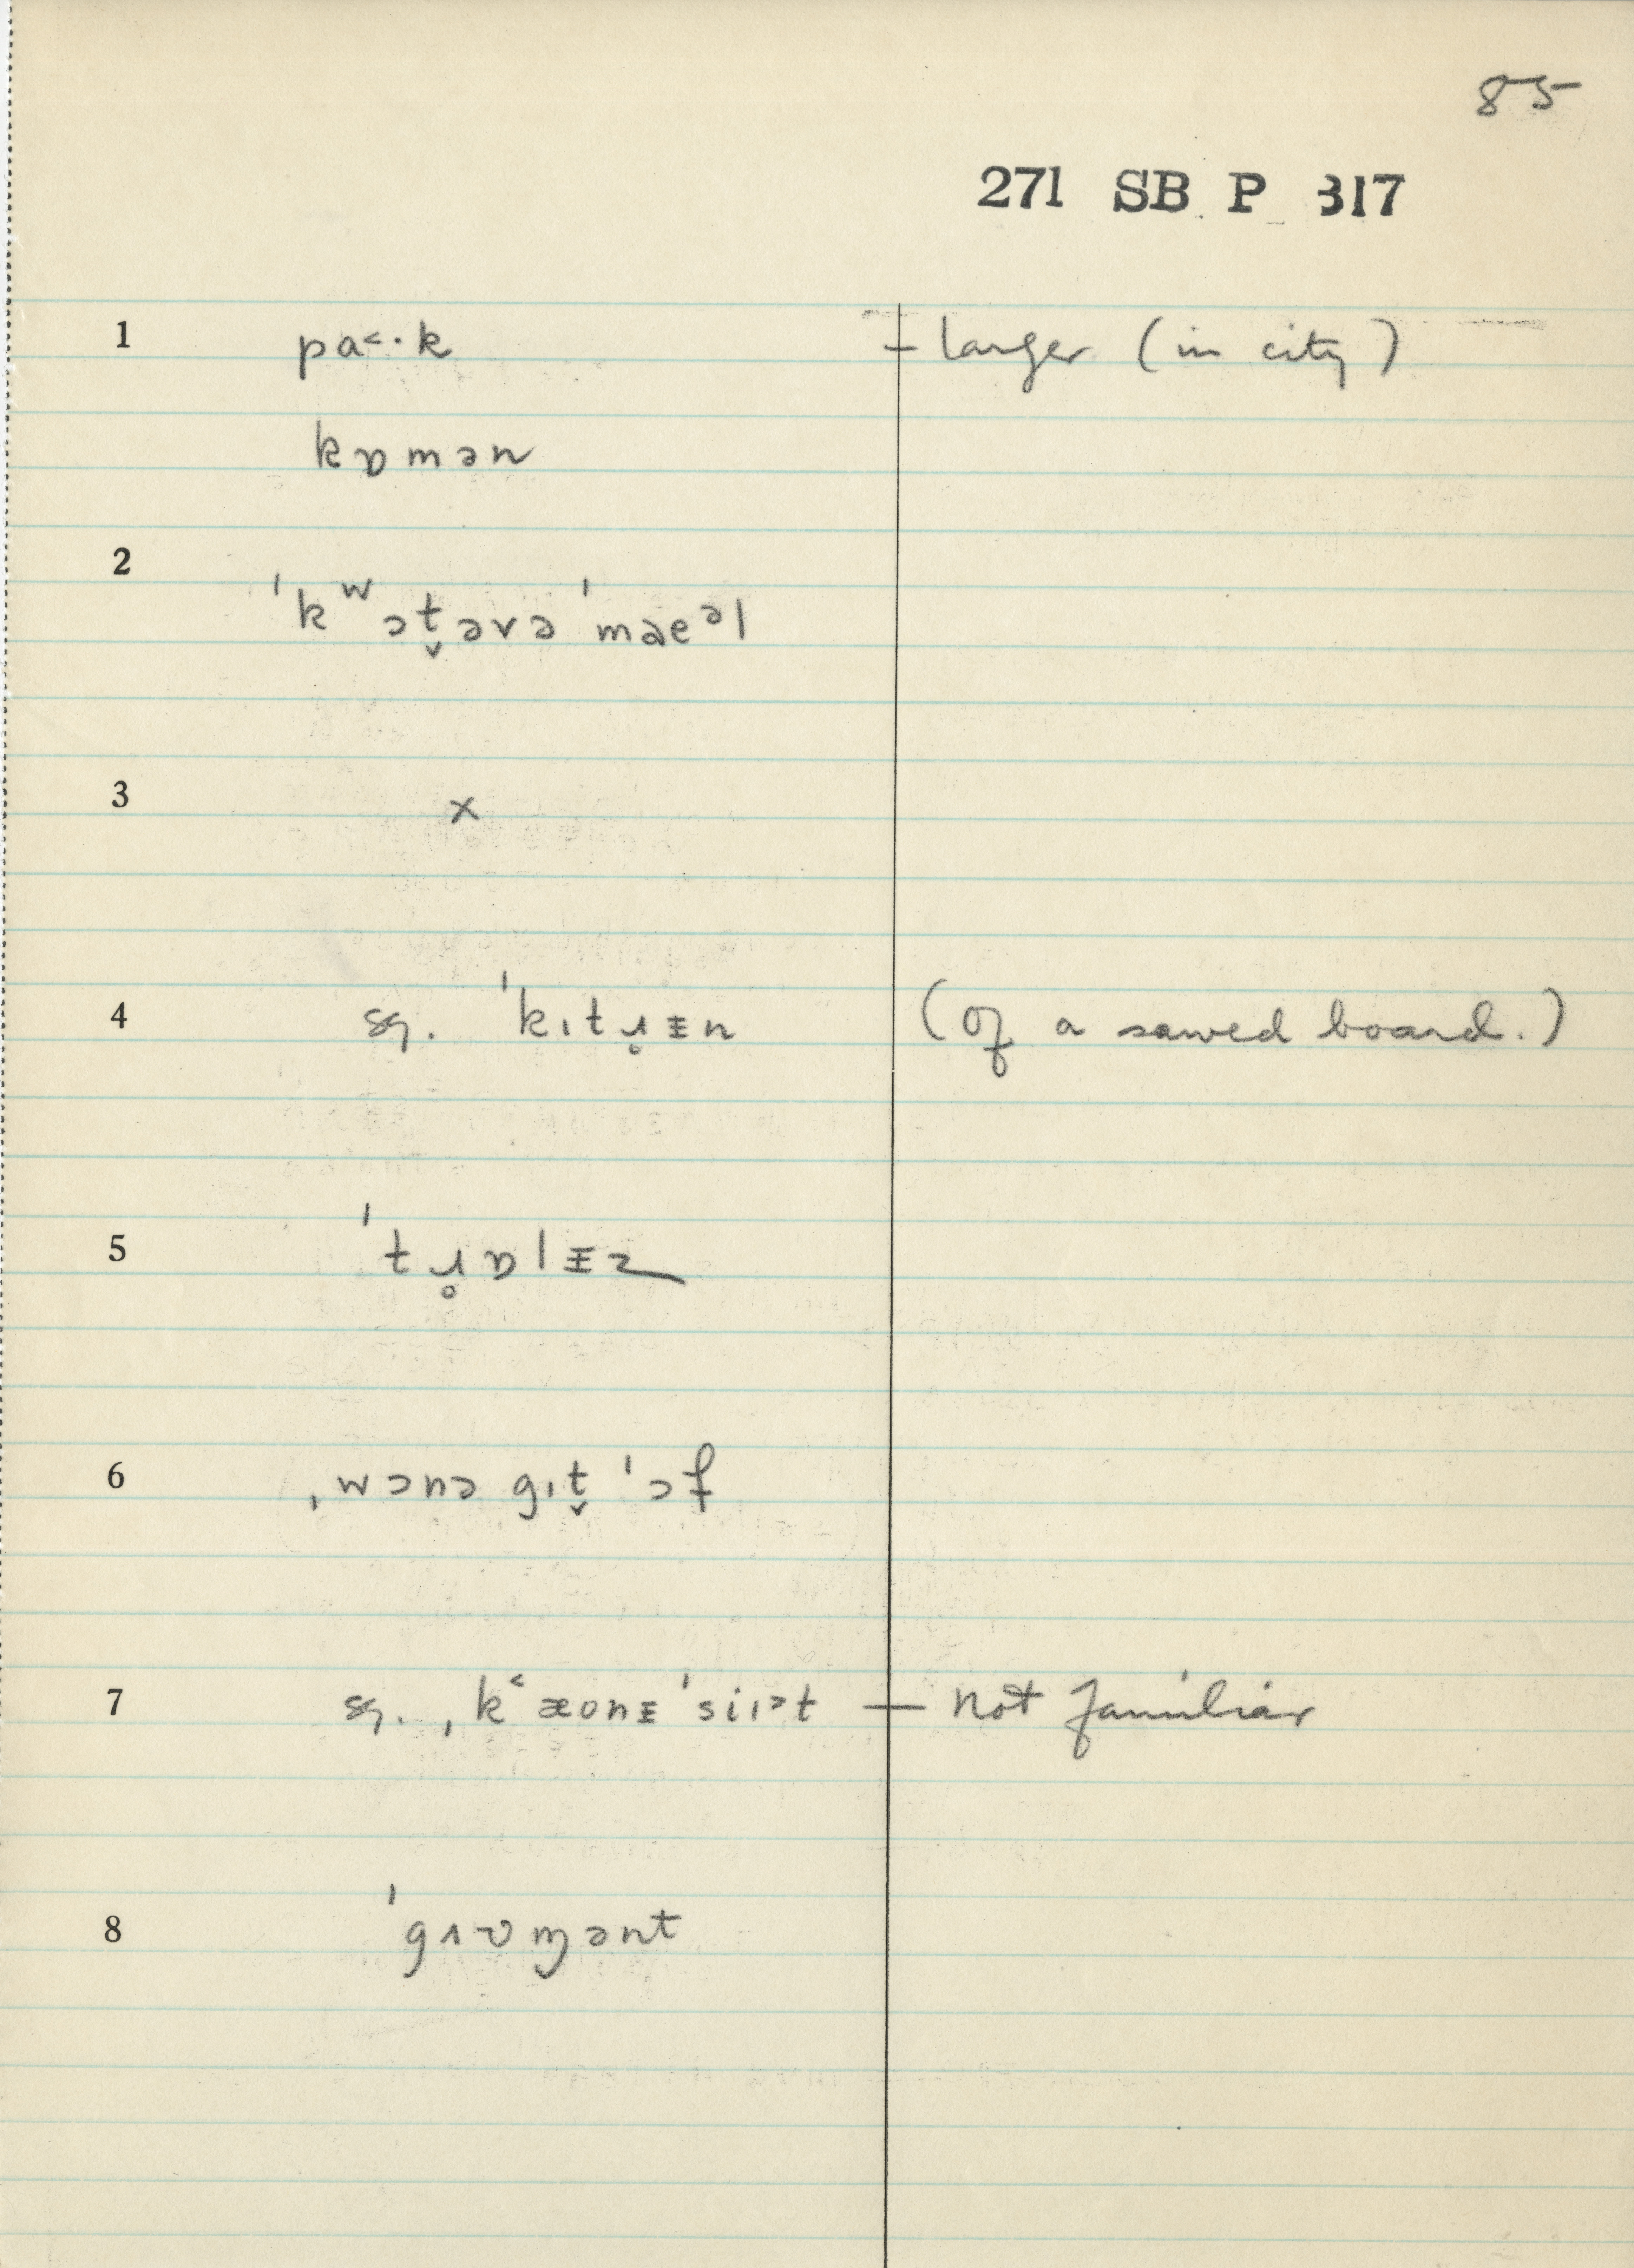 85
271 SB P 317
1 pa˂·k – larger (in city)
kɒmən
2 ˈkʷɔt̬əvəˈmaeᵊl
3 x
4 sg. ˈkɪtɹ̥ᵻn (of a sawed board.)
5 ˈtɹ̥ɒlᵻz
6 ˌwɔnə gɪt̬ ˈɔf
7 sg. ˌk˂æonᵻˈsiɪᵊt — not familiar
8 ˈgʌʋm̡ənt